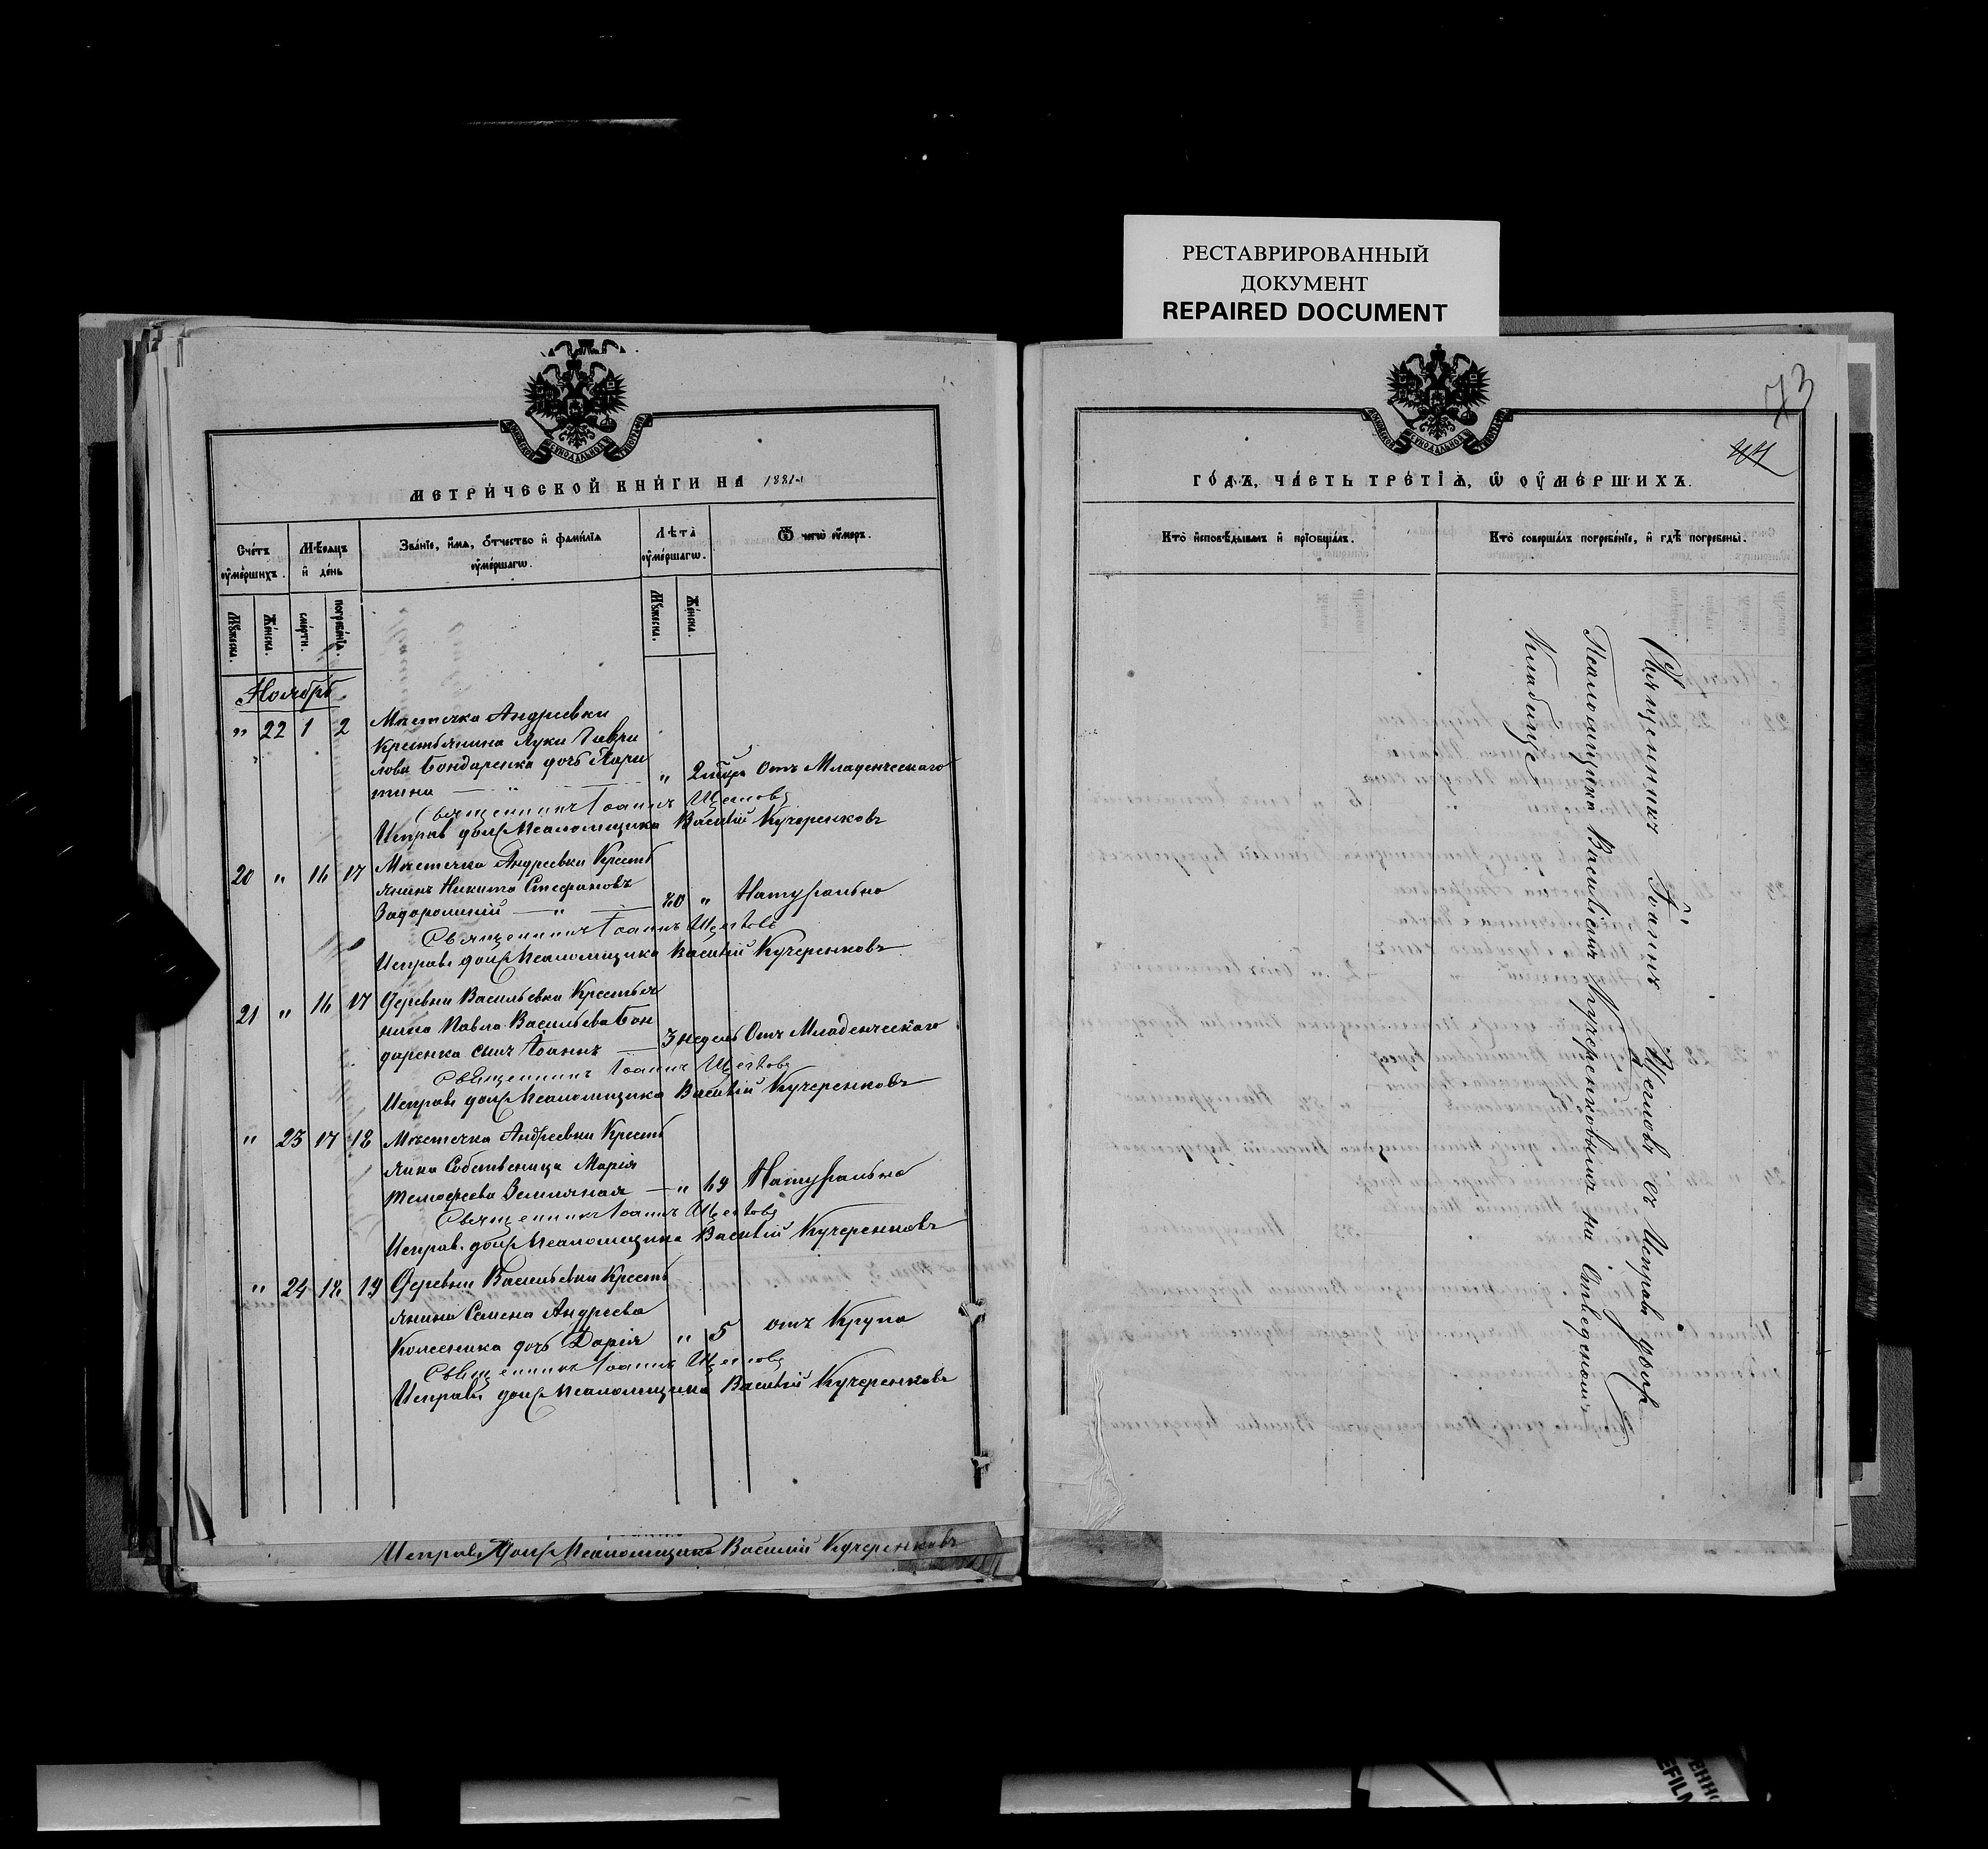 РЕСТАВРИРОВАННЫЙ
ДОКУМЕНТ
REPAIRED DOCUMENT
МЕТРИ́ЧЕСКОЙ КНИ́ГИ НА 1881
Сче́тъ оу҆ме́ршихъ.
Мѣ́сяцъ и҆ де́нь
Зва́нїе, и҆́мѧ, ѻ҆́тчество и҆ фами́лїѧ
оу҆ме́ршагѡ.
Лѣ́та
оу҆ме́ршагѡ.
Ѿ чегѡ̀ оу҆́меръ.
Мꙋ́жеска.
Же́нска.
сме́рти.
погребе́нїѧ.
Мꙋ́жеска.
Же́нска.
Ноябрь
" 22 1 2 Местечка Андреевки
Крестьянина Луки Гаври
лова Бондаренка дочь Хари
тина " 2 Отъ Младенческаго
Священникъ Іоаннъ Щегловъ
Исправ долж Псаломщика Василій Кучеренковъ
20 " 16 17 Местечка Андреевки Кресть
янинъ Никита Стефановъ
Задорожній " 80 " Натурально
Священникъ Іоаннъ Щегловъ
Исправ долж Псаломщика Василій Кучеренковъ
21 " 16 17 Деревни Васильевки Крестья
нина Павла Васильева Бон
даренка сынъ Іоаннъ 3 недель Отъ Младенческаго
Священникъ Іоаннъ Щегловъ
Исправ долж Псаломщика Василій Кучеренковъ
" 23 17 18 Местечка Андреевки Кресть
янка Собственица Марія
Тимофеева Земляная " 69 Натурально
Священникъ Іоаннъ Щегловъ
Исправ. долж Псаломщика Василій Кучеренковъ
" 24 18 19 Деревни Васильевки Кресть
янина Семена Андреева
Колесника дочь Дарія " 5 отъ Крупа
Священникъ Іоаннъ Щегловъ
Исправ долж Псаломщика Василій Кучеренковъ
Исправ долж Псаломщика Василій Кучеренковъ
73
44
ГО́ДЪ, ЧА́СТЬ ТРЕ́ТЇѦ, Ѡ҆ ОУ҆МЕ́РШИХЪ.
Кто̀ и҆сповѣ́дывалъ и҆ прїѻбща́лъ.
Кто̀ соверша́лъ погребе́нїе, и҆ гдѣ̀ погребены̀.
Священникъ Іоаннъ Щегловъ съ Исправ долж
Псаломщика Василіемъ Кучеренковымъ на отведеномъ
Кладбище